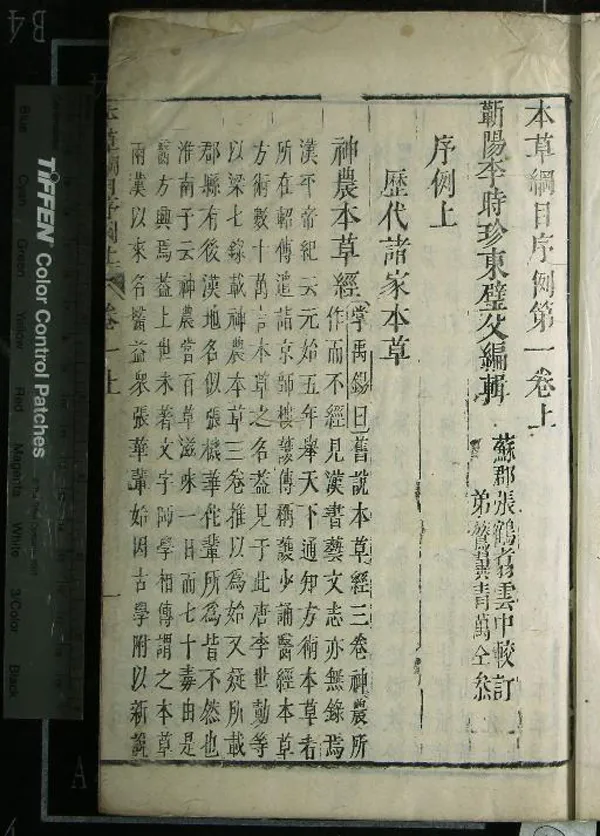 本草綱目序例第一卷上
蘄陽李時珍東璧父編輯
蘇郡張鶴翥雲中較訂
弟鷟翼青萬仝叅
序例上
歷代諸家本草
神農本草經
掌禹錫曰舊說本草經三卷神農所
作而不經見漢書藝文志亦無錄焉
漢平帝紀云元始五年舉天下通知方術本草者
所在軺傳遣詣京師樓護傳稱護少誦醫經本草
方術數十萬言本草之名蓋見于此唐李世勣等
以梁七錄載神農本草三卷推以爲始又疑所載
郡縣有後漢地名似張機華佗輩所爲皆不然也
淮南于云神農嘗百草滋味一日而七十毒由是
醫方興焉蓋上世未著文字師學相傳謂之本草
兩漢以來名醫益衆張華輩始因古學附以新說
本草綱目序例上
卷一上
一
TIFFEN Color Control Patches
Blue
Cyan
Green
Yellow
Red
Magenta
White
3-Color
Black
B4
A